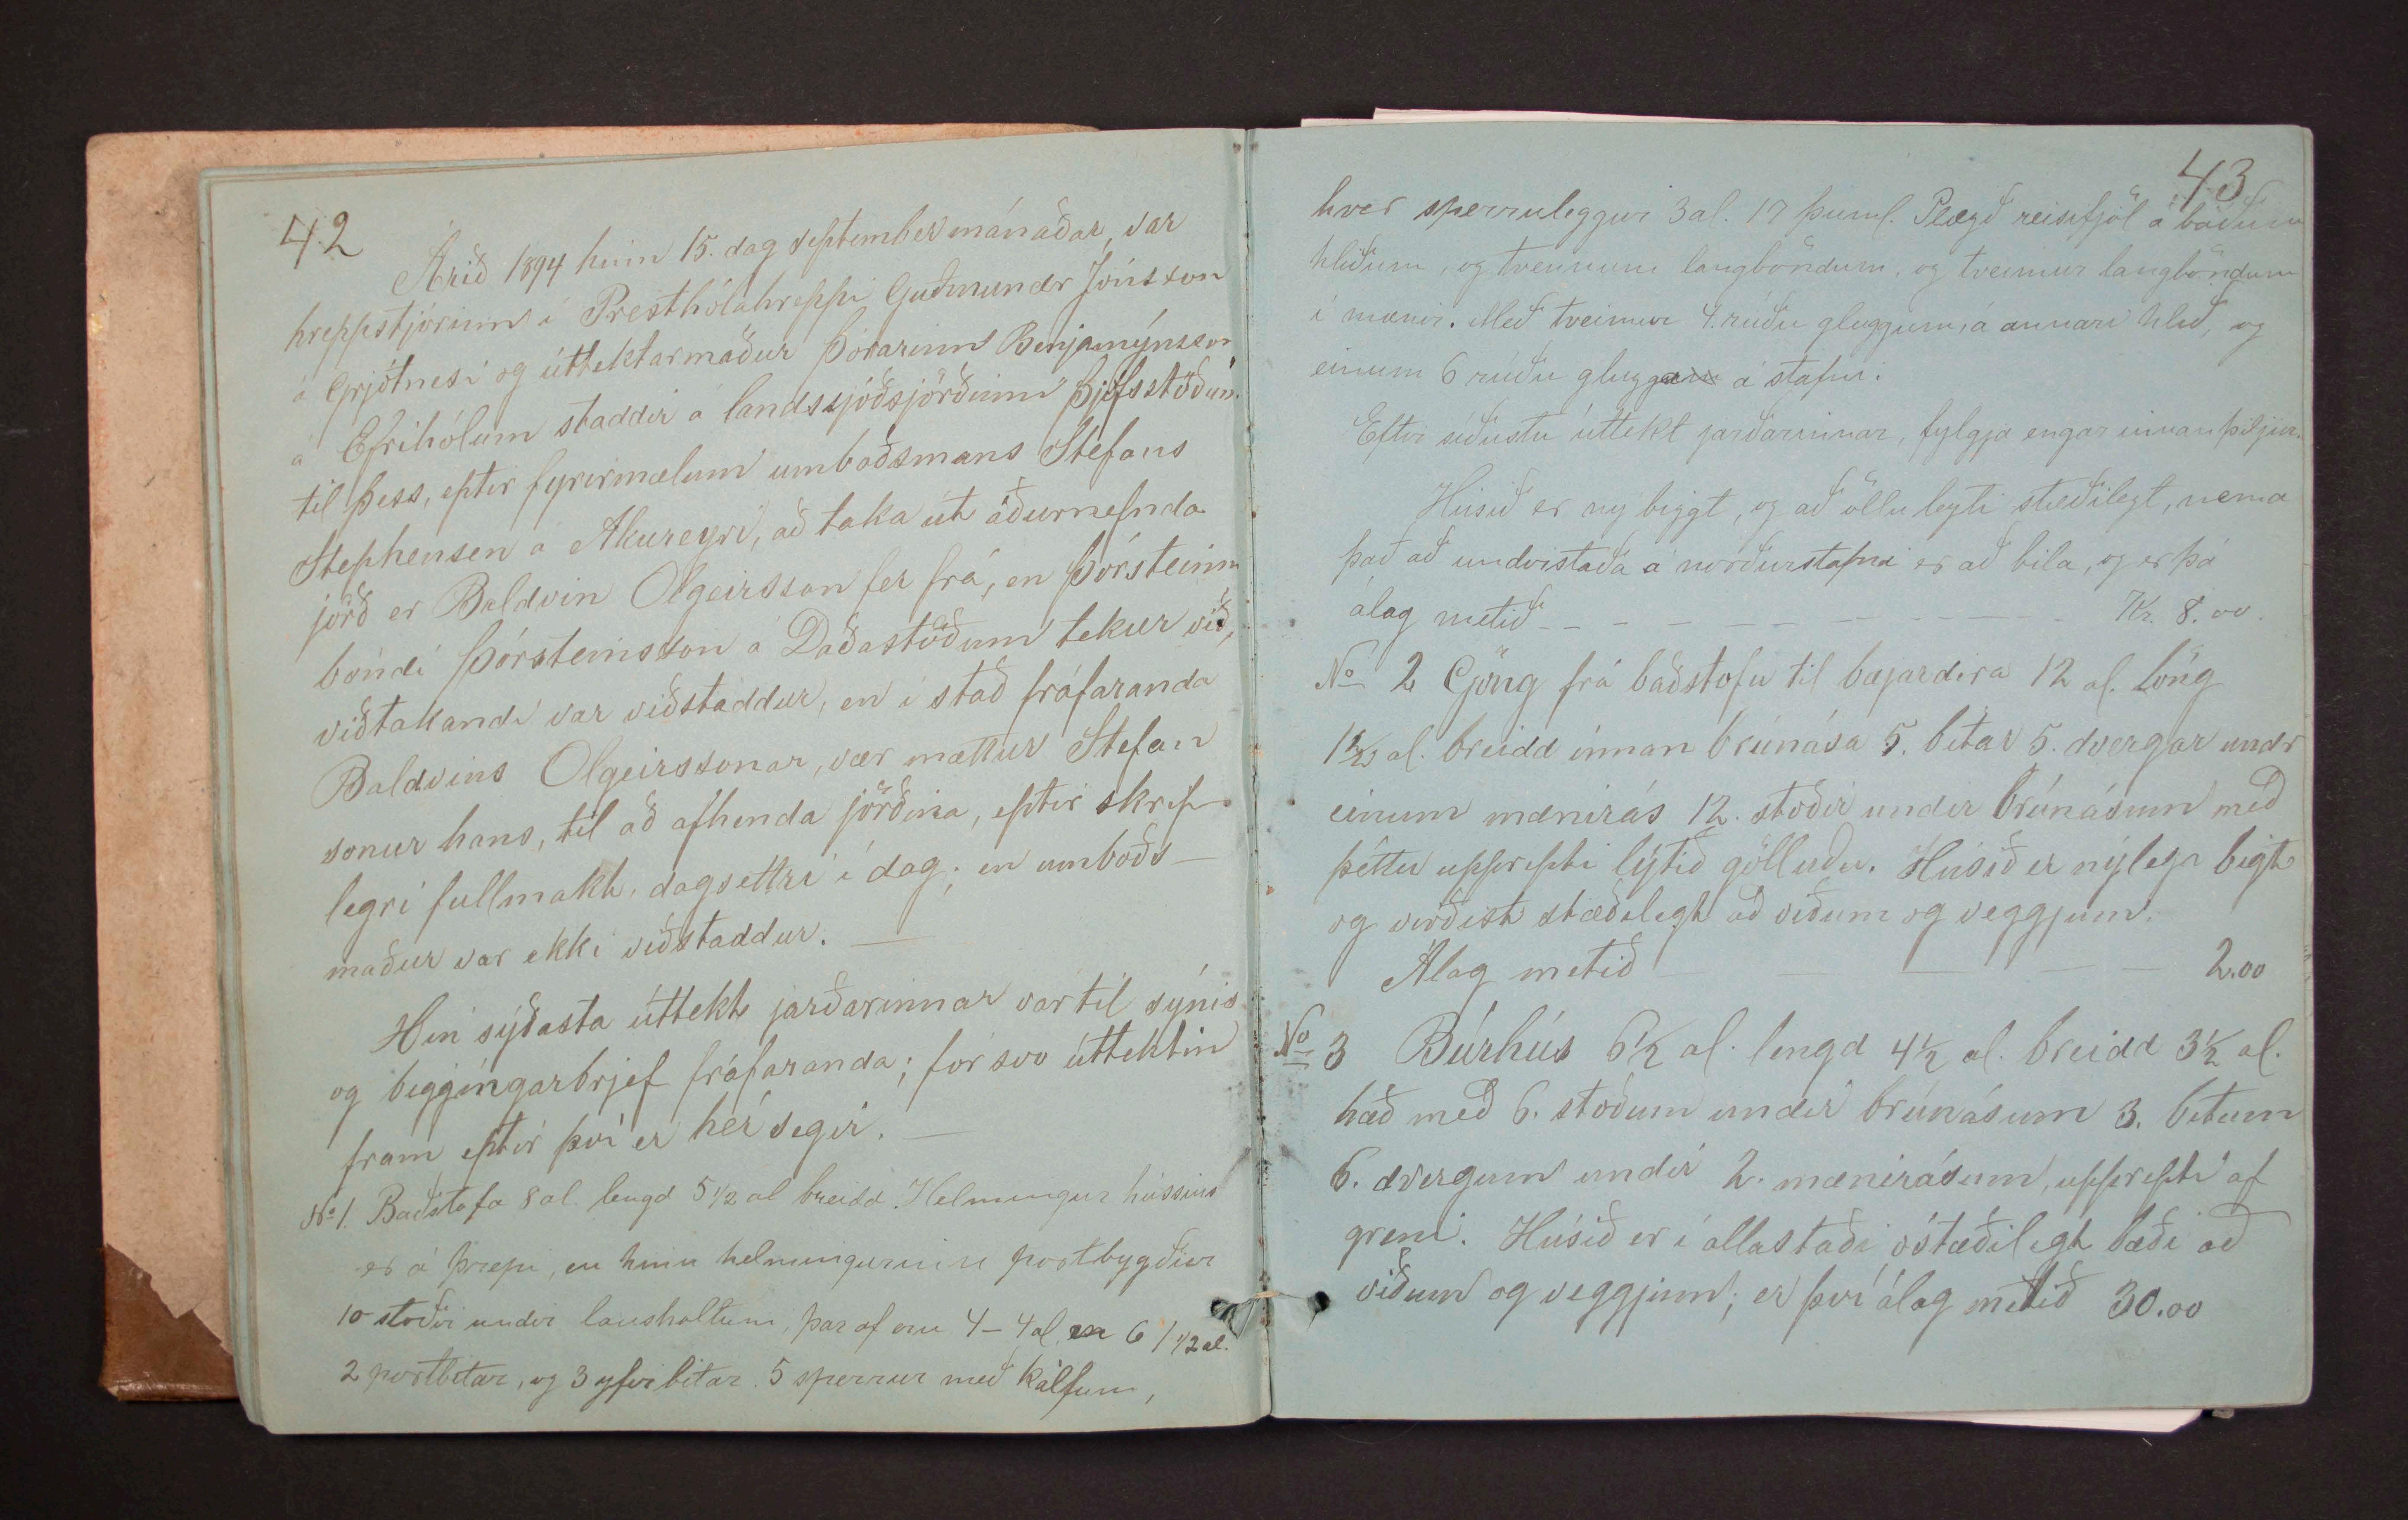 42
Árið 1894 hinn 15. dag septembermánaðar, var
hreppstjórinn í Presthólahreppi Guðmundr Jónsson
á Grjótnesi og úttektarmaður Þórarinn Benjamýnsson
á Efrihólum staddir á landssjóðsjörðinni Þjófsstöðum.
til þess, eptir fyrirmælum umboðsmans Stefans
Stephensen á Akureyri, að taka út áðurnefnda
jörð er Baldvin Olgeirsson fer frá, en Þórsteinn
bóndi Þórsteinsson á Daðastöðum tekur við,
viðtakandi var viðstaddur, en í stað fráfaranda
Baldvins Olgeirssonar, vær mættur Stefan
sonur hans, til að afhenda jörðina, eptir skrif-
legri fullmakt, dagsettri í dag; en umboðs-
maður var ekki viðstaddur. —
Hin sýðasta úttekt jarðarinnar var til sýnis
og biggíngarbrjef fráfaranda; fór svo úttektin
fram eptir því er hér segir. —
No 1. Baðstofa 8 al. lengd 5 1/2 al breidd. Helmingur hússins
er á þrepi, en hinn helmingurinn portbygður
10 stoðir undir lausholtum, þar af eru 4 – 4 al. en 6 1 1/2 al.
2 portbitar, og 3 yfirbitar. 5 sperrur með kálfum,
43
hver sperruleggur 3 al. 17 þuml. Plægð reisifjöl á báðum
hliðum, og tvennum langböndum, og tveimur langböndum
í mænir. Með tveimur 4. rúðu gluggum, á annari hlið, og
einum 6 rúðu glugga á stafni.
Eftir síðustu úttekt jarðarinnar, fylgja engar innanþiljur.
Húsið er ny biggt, og að öllu leyti stæðilegt, nema
það að undvistaða á norðurstafni er að bila, og er þá
álag metið - - - - - - - - - - Kr. 8.00.
No 2 Göng frá baðstofu til bæjardira 12 al. löng
1 1/2 al. breidd innan brúnása 5. bitar 5. dvergar undr
einum mænirás 12. stoðir undir brúnásum með
þéttu upprepti lýtið gölluðu. Húsið er nýlega bigt
og virðist stæðilegt að viðum og veggjum.
Álag metið — — — — 2.00
No 3 Búrhús 6 1/2 al. lengd 4 1/2 al. breidd 3 1/2 al.
hæð með 6. stoðum undir brúnásum 3. bitum
6. dvergum undir 2. mænirásum, upprepti af
greni. Húsið er í allastaði óstæðilegt bæði að
viðum og veggjum; er því álag metið 30.00